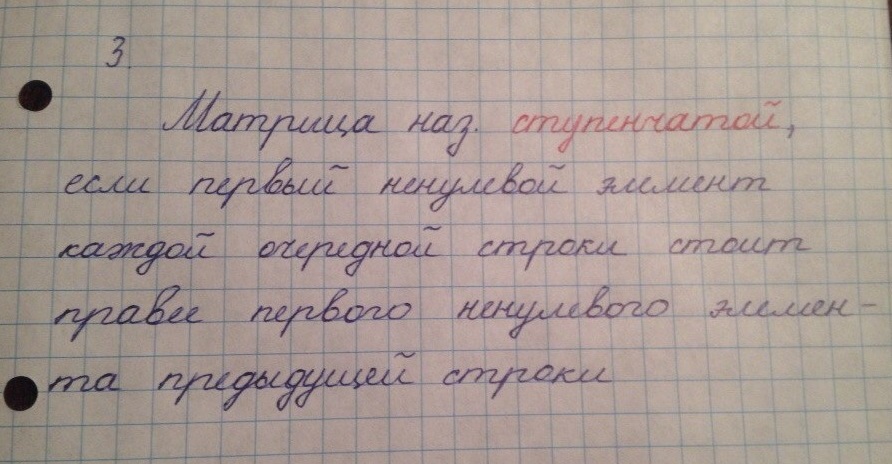 3.
Матрица наз. ступенчатой,
если первый ненулевой элемент
каждой очередной строки стоит
правее первого ненулевого элемен-
та предыдущей строки